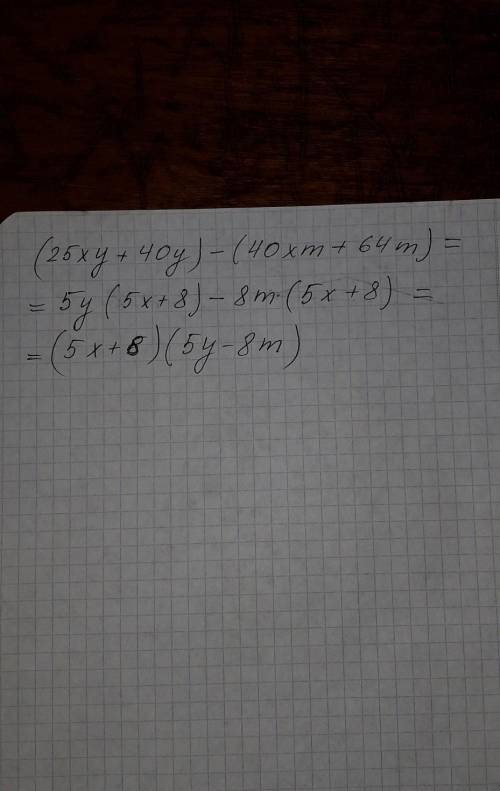 (25xy + 40y) - (40xm + 64m) =
= 5y (5x+8) - 8m·(5x+8) =
= (5x+8)(5y-8m)